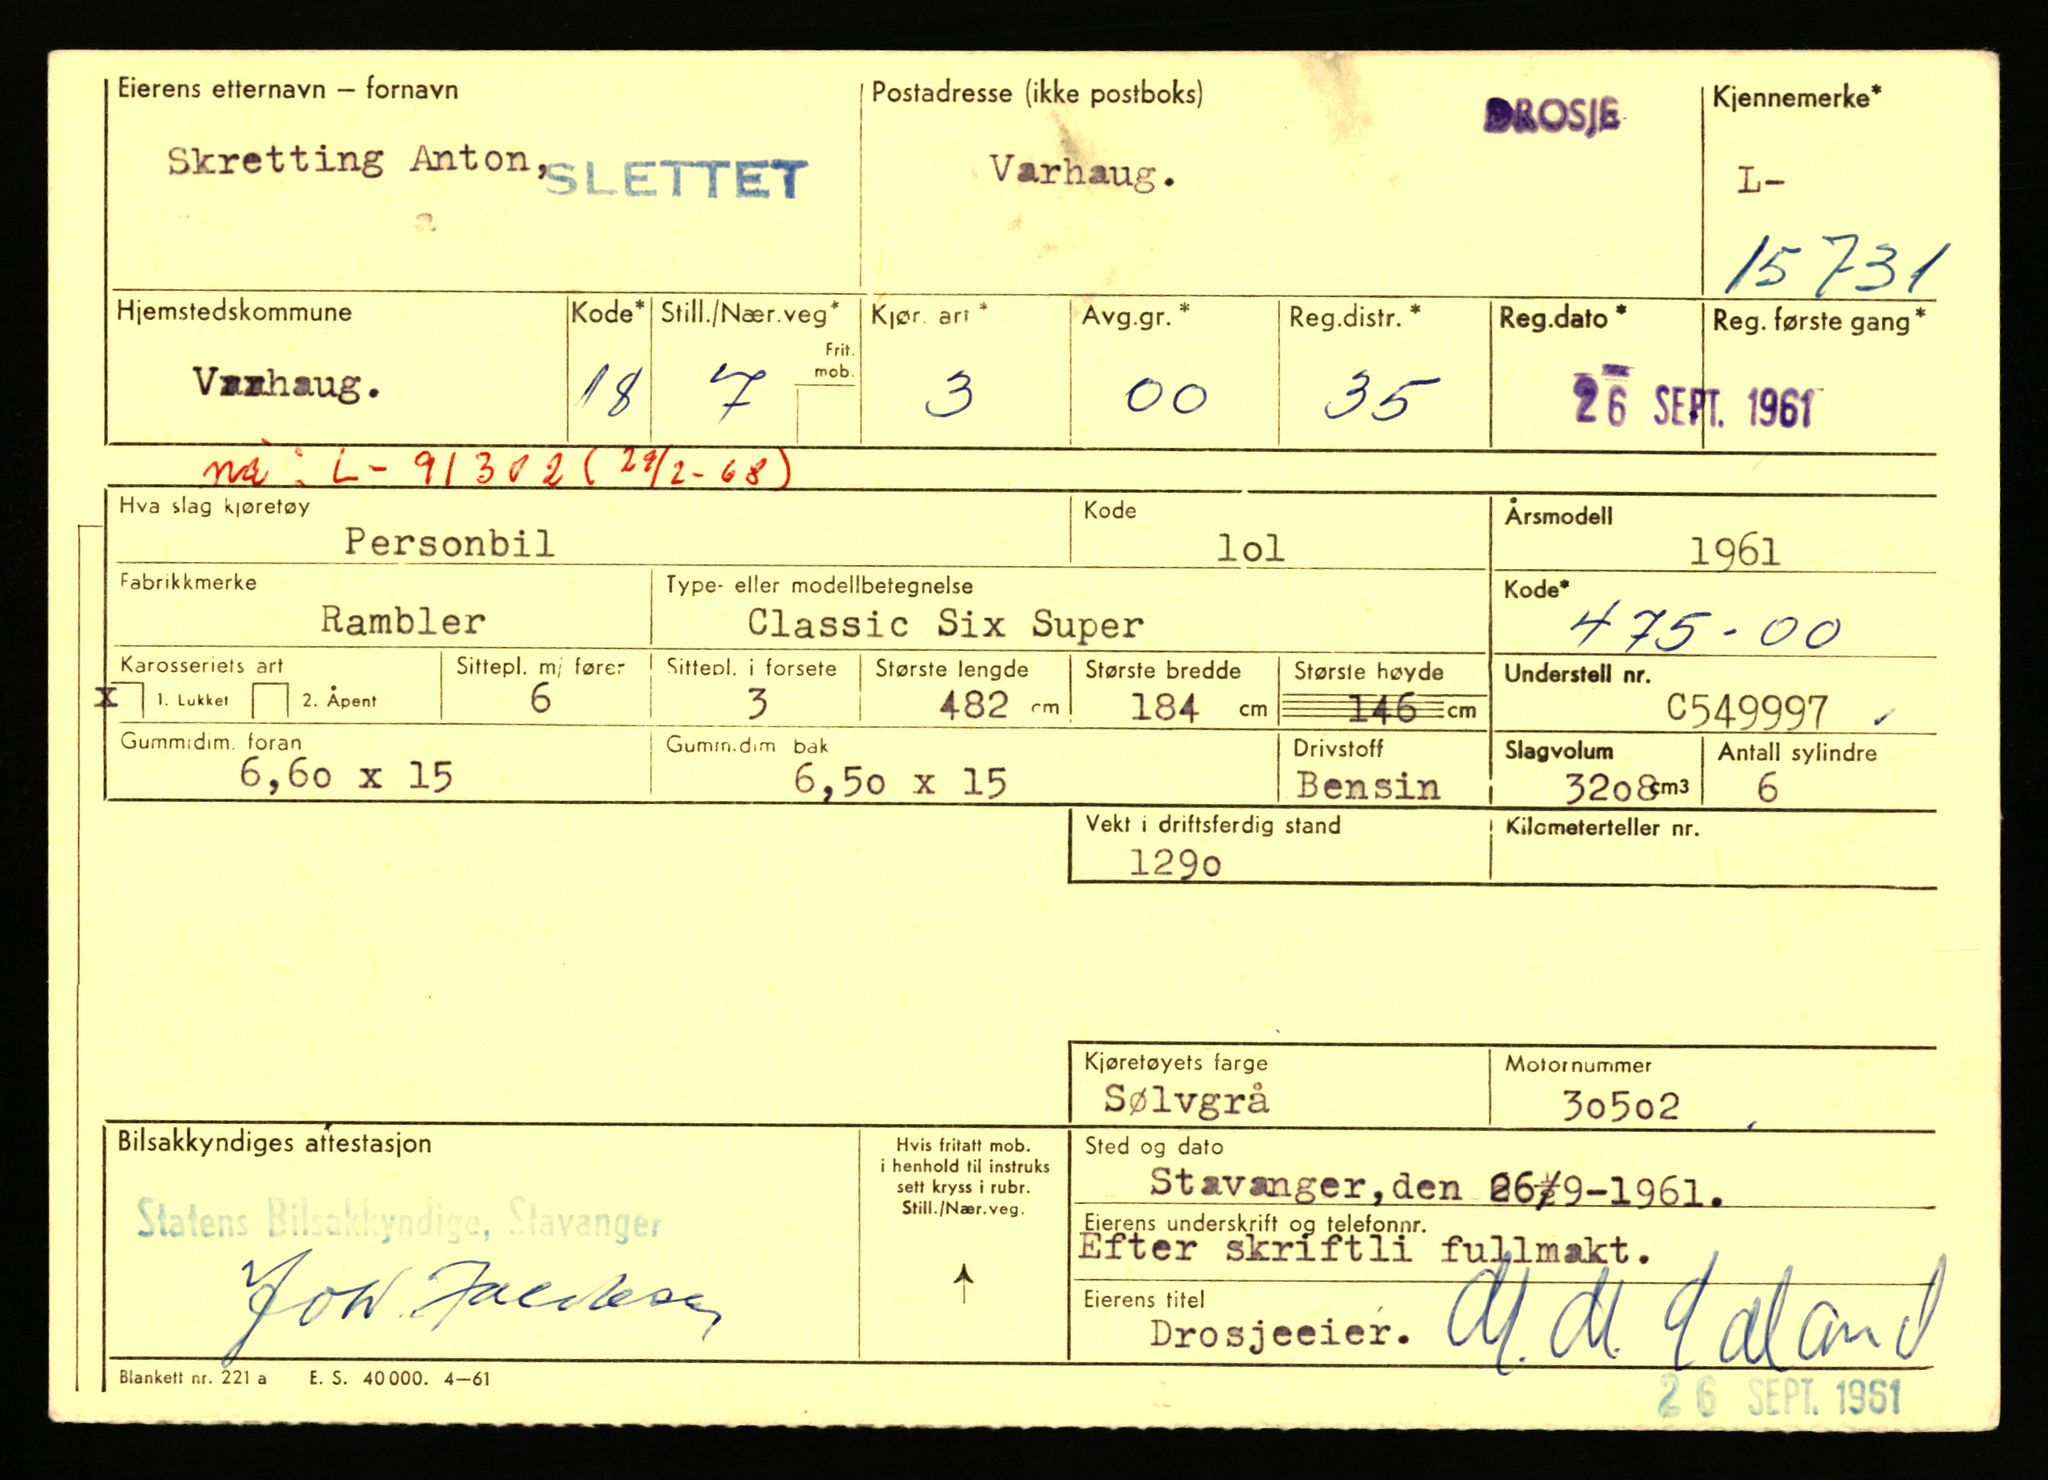 Eierens etternavn – fornavn
Postadresse (ikke postboks)
DROSJE
Kjennemerke*
Skretting Anton,
SLETTET
Varhaug.
L-
15731
Hjemstedskommune
Kode*
Still./Nær.veg*
Kjør. art*
Avg.gr.*
Reg.distr.*
Reg.dato*
Reg. første gang*
Frit. mob.
Varhaug.
18
7
3
00
35
26 SEPT. 1961
nå: L-91302 (29/2-68)
Hva slag kjøretøy
Kode
Årsmodell
Personbil
lol
1961
Fabrikkmerke
Type- eller modellbetegnelse
Kode*
Rambler
Classic Six Super
475-00
Karosseriets art
Sittepl. m/ fører
Sittepl. i forsete
Største lengde
Største bredde
Største høyde
Understell nr.
x 1. Lukket 2. Åpent
6
3
482 cm
184 cm
146 cm
C549997
Gummidim. foran
Gumm.dim bak
Drivstoff
Slagvolum
Antall sylindre
6,60 x 15
6,50 x 15
Bensin
3208 cm3
6
Vekt i driftsferdig stand
Kilometerteller nr.
1290
Kjøretøyets farge
Motornummer
Sølvgrå
30502
Bilsakkyndiges attestasjon
Hvis fritatt mob.
i henhold til instruks
sett kryss i rubr.
Still./Nær.veg.
Sted og dato
Stavanger, den 26/9-1961.
Statens Bilsakkyndige, Stavanger
Eierens underskrift og telefonnr.
Efter skriftli fullmakt.
Eierens titel
Drosjeeier.
M. M. Edland
Blankett nr. 221 a E. S. 40 000. 4–61
26 SEPT. 1961